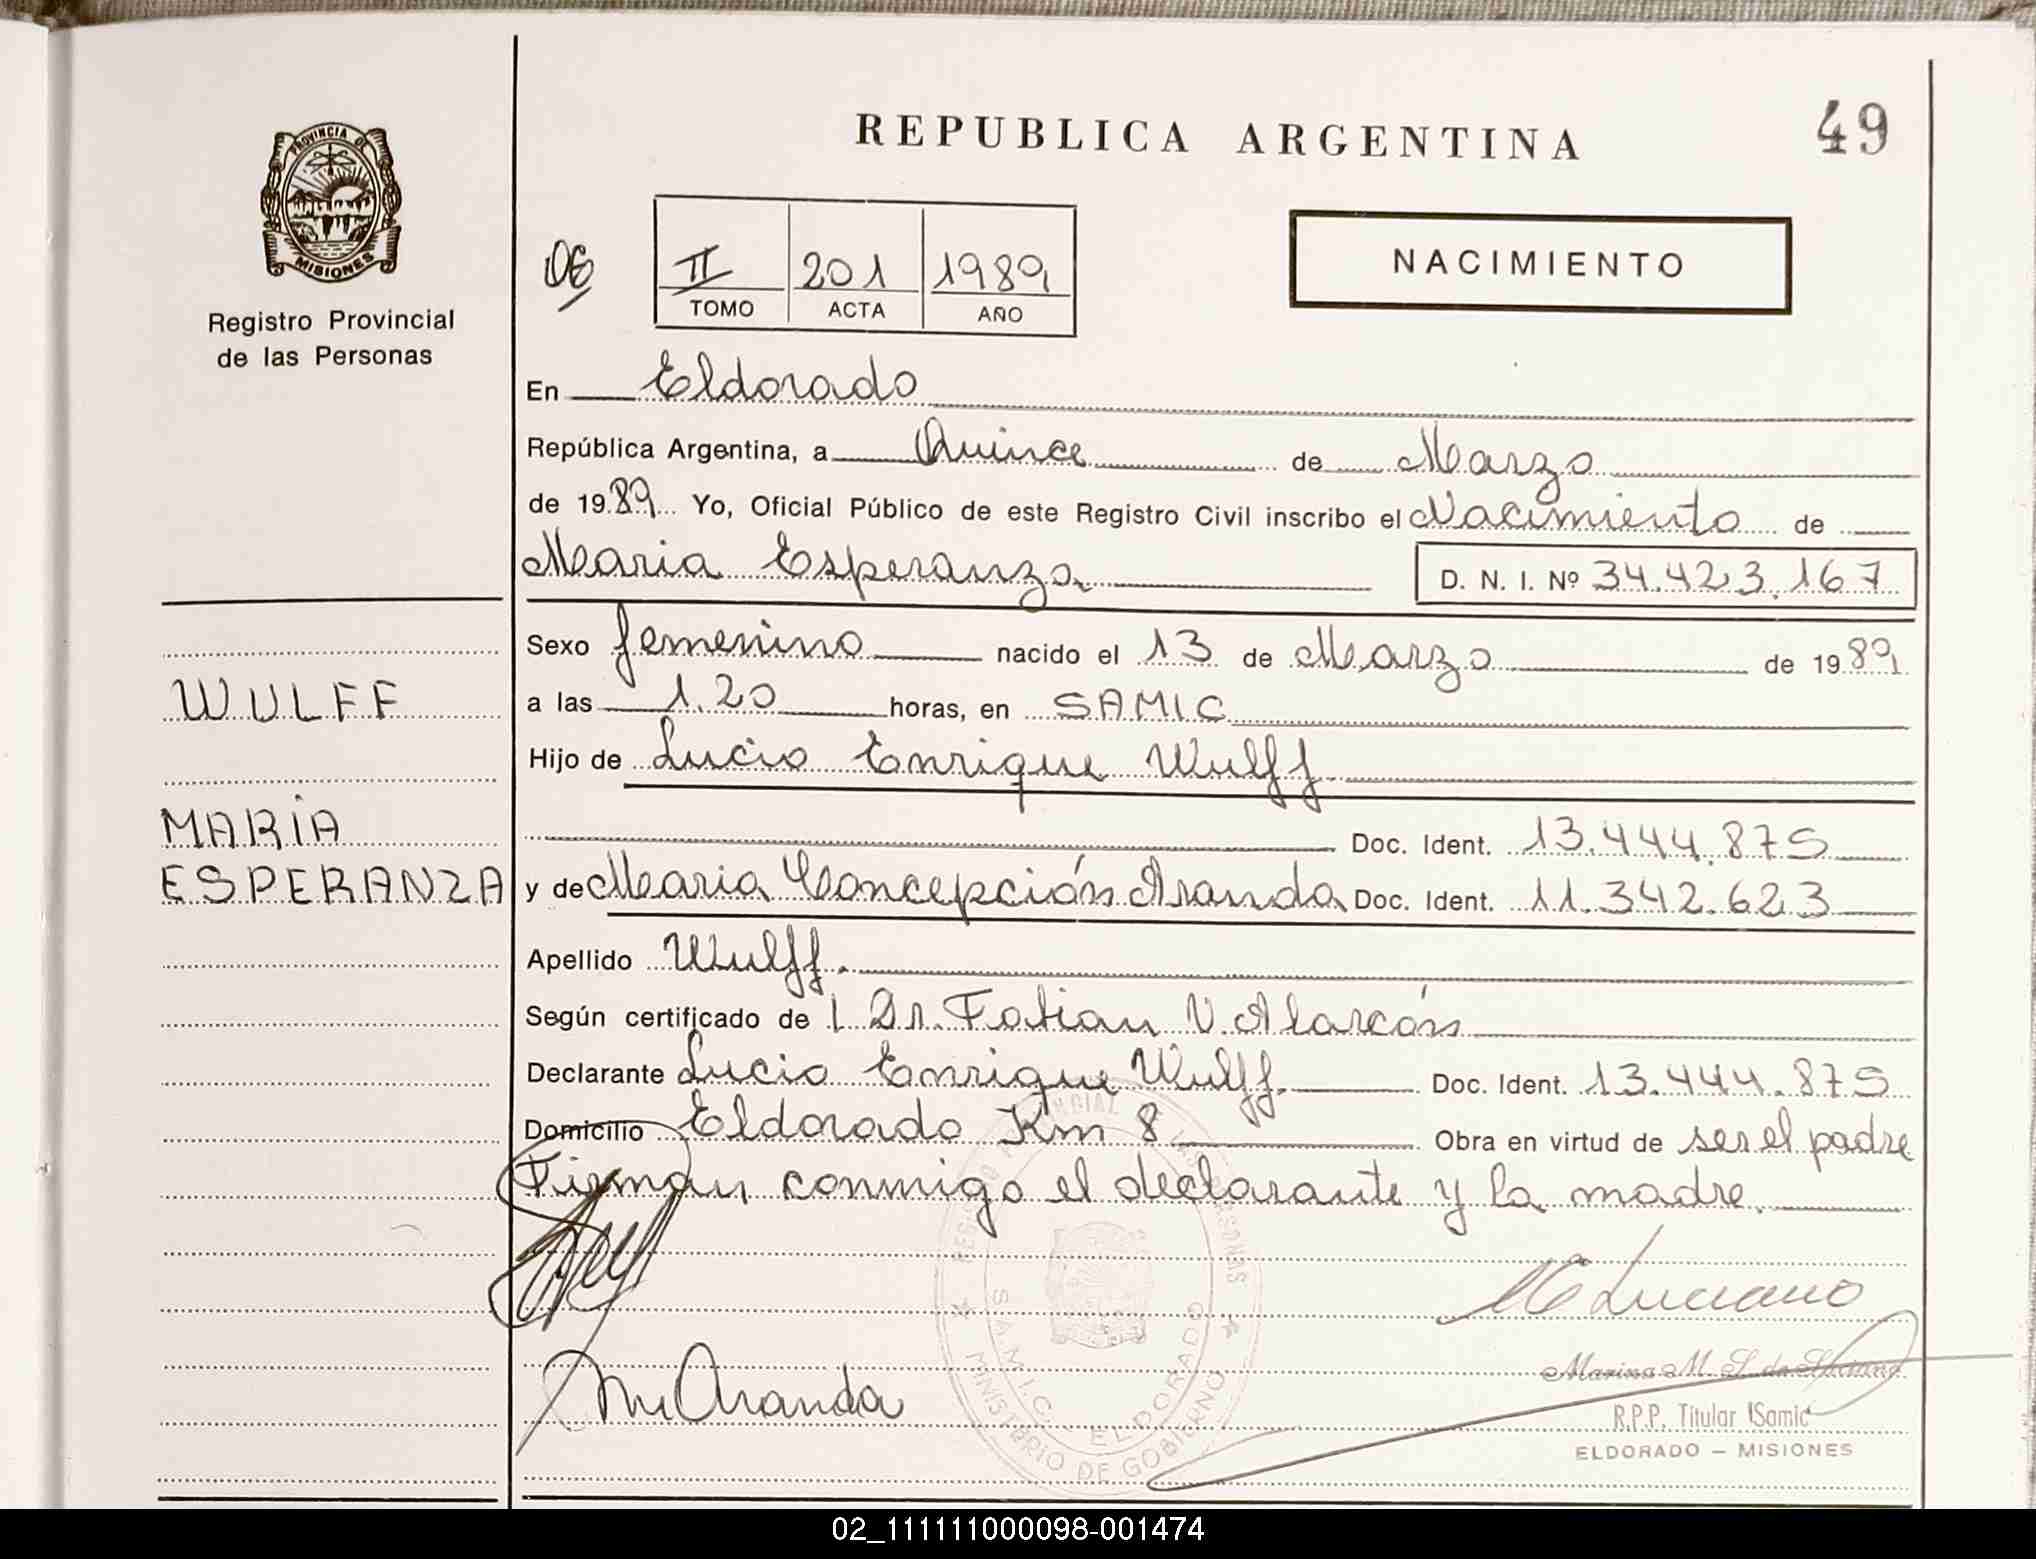 REPUBLICA ARGENTINA
49
PROVINCIA DE
MISIONES
Registro Provincial
de las Personas
06
II 201 1989
TOMO ACTA AÑO
NACIMIENTO
En Eldorado
República Argentina, a Quince de Marzo
de 1989 Yo, Oficial Público de este Registro Civil inscribo el Nacimiento de
Maria Esperanza D. N. I. Nº 34.423.167
Sexo femenino nacido el 13 de Marzo de 1989
WULFF
a las 1.20 horas, en SAMIC
Hijo de Lucio Enrique Wulff
MARIA
Doc. Ident. 13.444.875
ESPERANZA
y de Maria Concepción Aranda Doc. Ident. 11.342.623
Apellido Wulff.
Según certificado de l Dr. Fabian V. Alarcón
Declarante Lucio Enrique Wulff. Doc. Ident. 13.444.875
Domicilio Eldorado Km 8 Obra en virtud de ser el padre
Firman conmigo el declarante y la madre.
REGISTRO PROVINCIAL DE LAS PERSONAS
S.A.M.I.C. ELDORADO
MINISTERIO DE GOBIERNO
Luciano
Aranda
Marina M. S. de Luciano
R.P.P. Titular Samic
ELDORADO – MISIONES
02_111111000098-001474